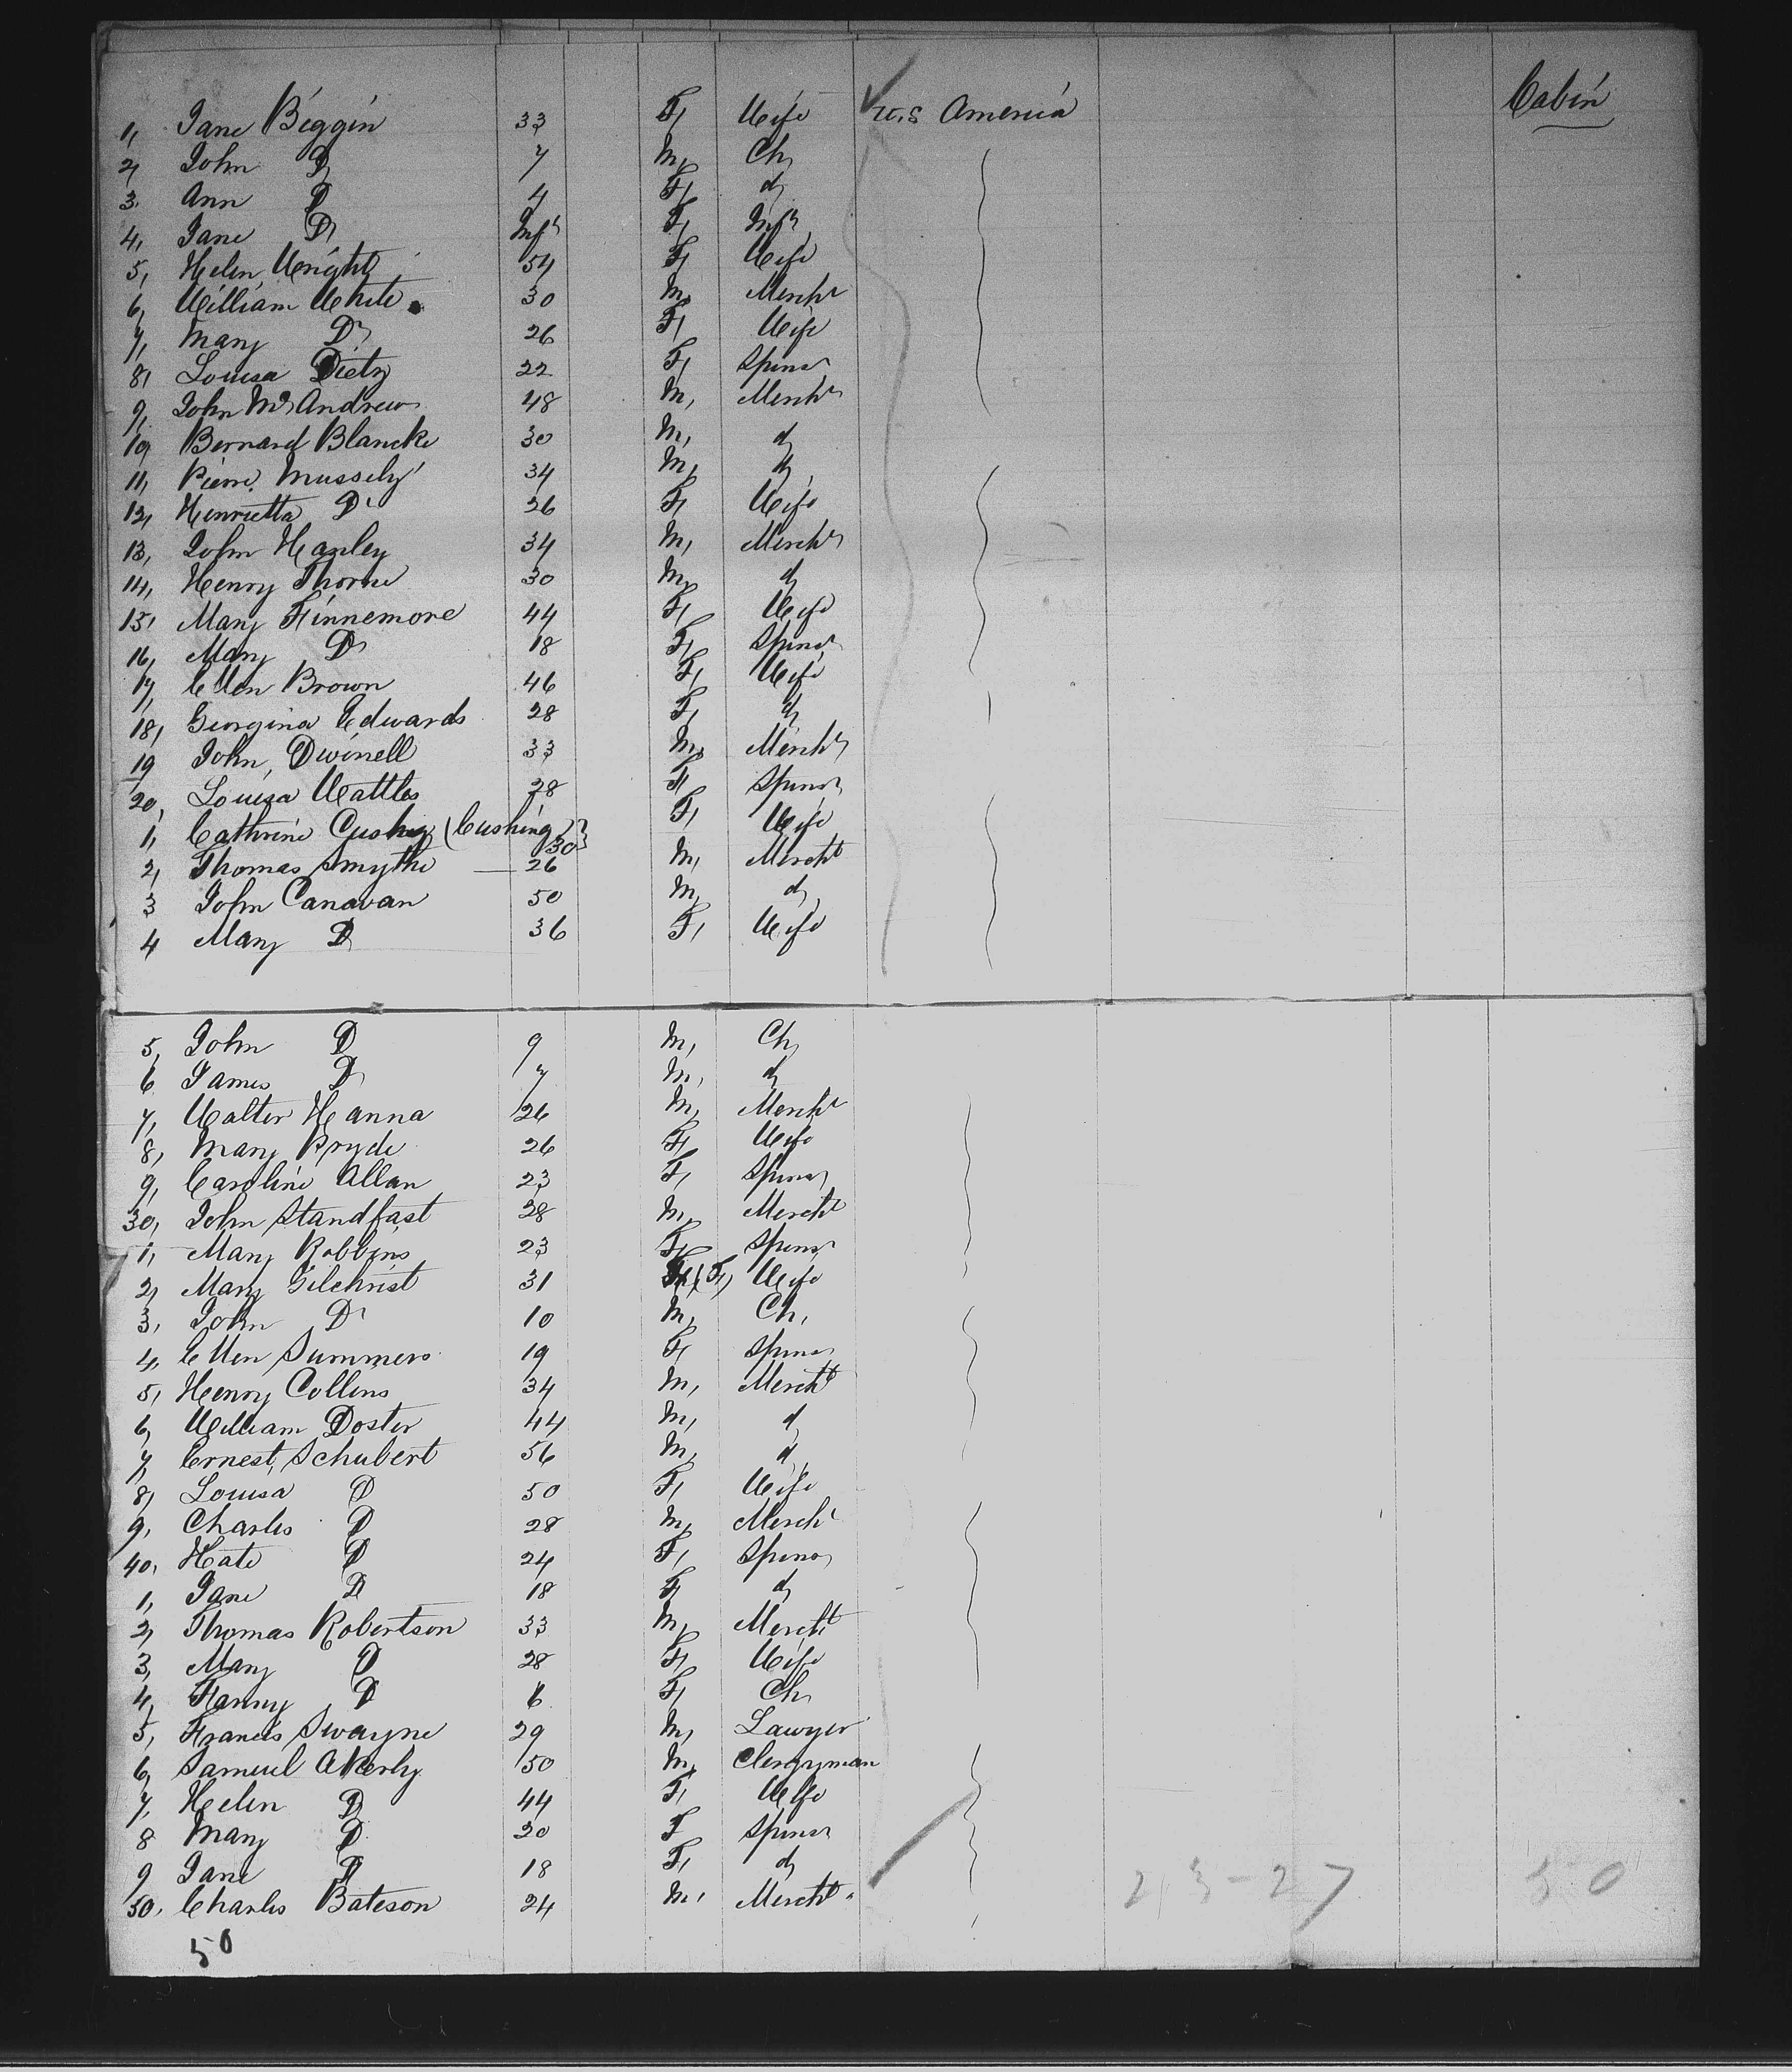 Cabin
1, Jane Biggin 33 F, Wife U.S America
2, John D 7 M, Ch,
3, Ann D 4 F, d,
4, Jane D, Inft F, Inft,
5, Helen Wright, 54 F, Wife
6, William White 30 M, Mercht
7, Mary D, 26 F, Wife
8, Louisa Dietz 22 F, Spinsr
9, John McAndrew 48 M, Mercht
10, Bernard Blancke 30 M, d,
11, Pierre Mussely 34 M, d,
12, Henrietta D, 26 F, Wife
13, John Hanley 34 M, Mercht
14, Henry Thorne 30 M, d,
15, Mary Finnemore 44 F, Wife
16, Mary D, 18 F, Spinsr
17, Ellen Brown 46 F, Wife
18, Georgina Edwards 28 F, d,
19 John Dwinell 33 M, Mercht
20, Louisa Wattles 28 F, Spinsr
1, Cathrine Cushig (Cushing) 30 F, Wife
2, Thomas Smythe 26 M, Mercht
3 John Canavan 50 M, d,
4 Mary D, 36 F, Wife
5, John D 9 M, Ch,
6 James D, 7 M, d,
7, Walter Hanna 26 M, Mercht
8, Mary Pryde 26 F, Wife
9, Caroline Allan 23 F, Spinsr
30, John Standfast 28 M, Mercht
1, Mary Robbins 23 F, Spinsr
2, Mary Gilchrist 31 (F,) Wife
3, John D, 10 M, Ch,
4, Ellen Summers 19 F, Spinsr
5, Henry Collins 34 M, Mercht
6, William Doster 44 M, d,
7, Ernest Schubert 56 M, d,
8, Louisa D 50 F, Wife
9, Charles D 28 M, Mercht
40, Kate D 24 F, Spinsr
1, Jane D 18 F, d,
2, Thomas Robertson 33 M, Mercht
3, Mary D 28 F, Wife
4, Fanny D 6 F, Ch,
5, Francis Swayne 29 M, Lawyer
6, Samuel Akerly 50 M, Clergyman
7, Helen D 44 F, Wife
8 Mary D 20 F Spinsr
9 Jane D 18 F, d,
50, Charles Bateson 24 M, Mercht
23-27 50
50